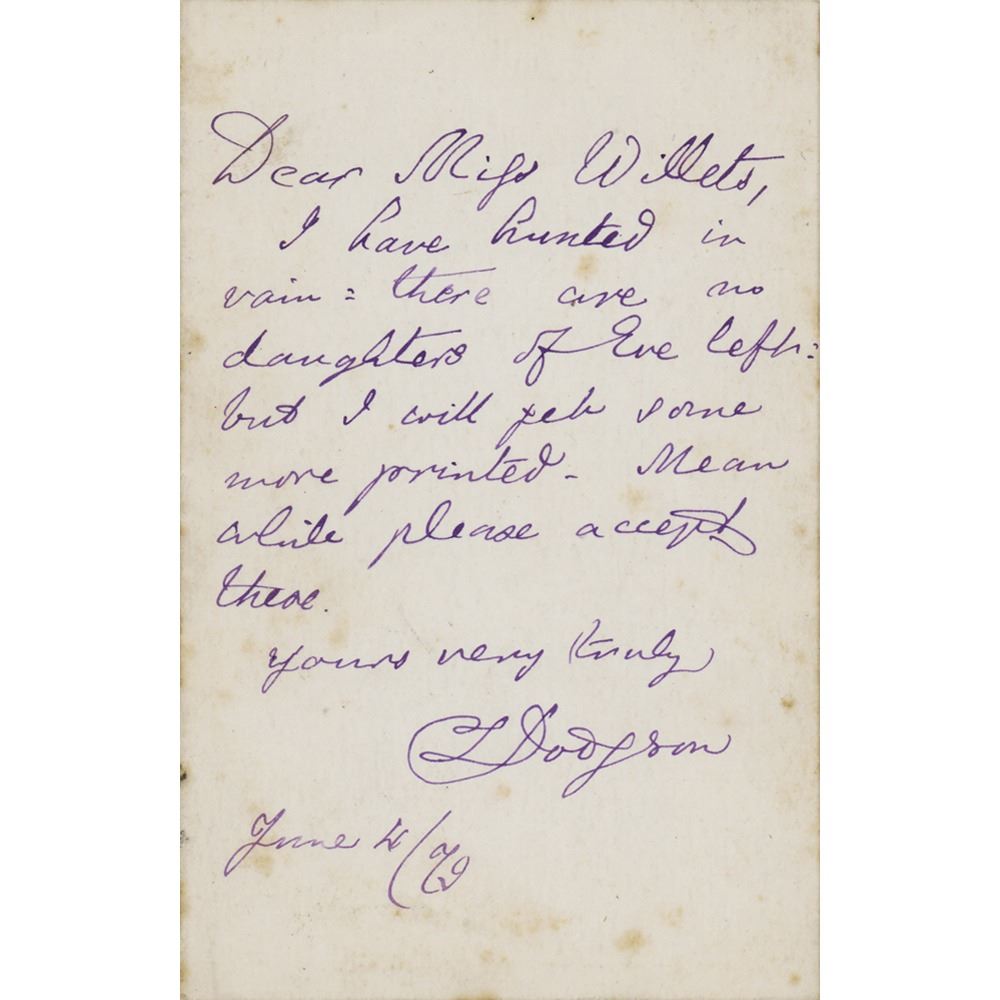 Dear Miss Willets,
I have hunted in
vain : there are no
daughters of Eve left :
but I will get some
more printed - Mean
while please accept
these.
Yours very truly
CLDodgson
June 4/79